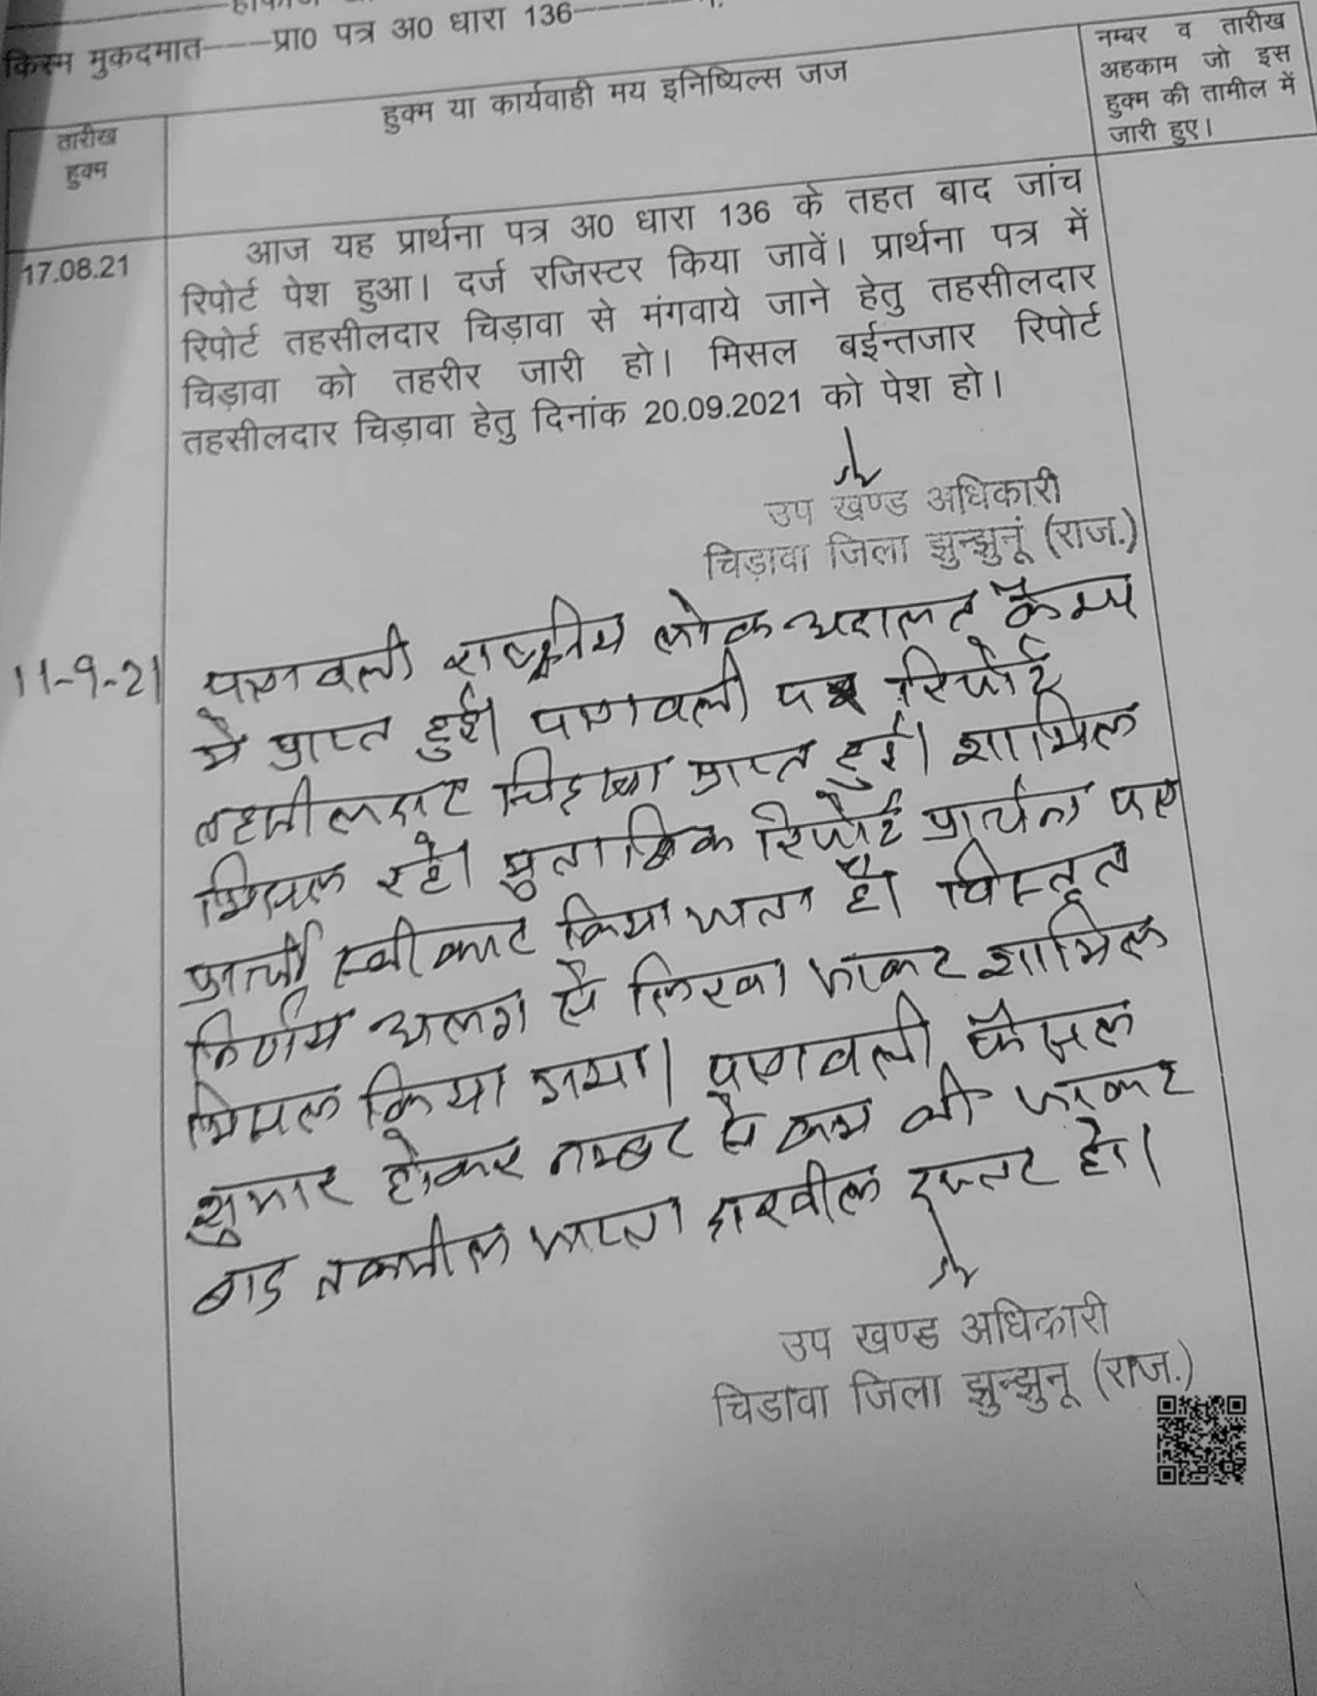 किस्म मुकदमात-----प्रा0 पत्र अ0 धारा 136
तारीख
हुक्म
हुक्म या कार्यवाही मय इनिष्यिल्स जज
नम्बर व तारीख
अहकाम जो इस
हुक्म की तामील में
जारी हुए।
17.08.21
आज यह प्रार्थना पत्र अ0 धारा 136 के तहत बाद जांच
रिपोर्ट पेश हुआ। दर्ज रजिस्टर किया जावें। प्रार्थना पत्र में
रिपोर्ट तहसीलदार चिड़ावा से मंगवाये जाने हेतु तहसीलदार
चिड़ावा को तहरीर जारी हो। मिसल बईन्तजार रिपोर्ट
तहसीलदार चिड़ावा हेतु दिनांक 20.09.2021 को पेश हो।
उप खण्ड अधिकारी
चिड़ावा जिला झुन्झुनूं (राज.)
11-9-21
पत्रावली राष्ट्रीय लोक अदालत कैम्प
में प्राप्त हुई। पत्रावली पर रिपोर्ट
तहसीलदार चिड़ावा प्राप्त हुई। शामिल
मिसल रहे। मुताबिक रिपोर्ट प्रार्थना पत्र
प्रार्थी स्वीकार किया जाता है। विस्तृत
निर्णय अलग से लिखा जाकर शामिल
मिसल किया गया। पत्रावली फैसल
शुमार होकर नम्बर से कम की जाकर
बाद तकमील जाप्ता दाखील दफ्तर हो।
उप खण्ड अधिकारी
चिडावा जिला झुन्झुनू (राज.)